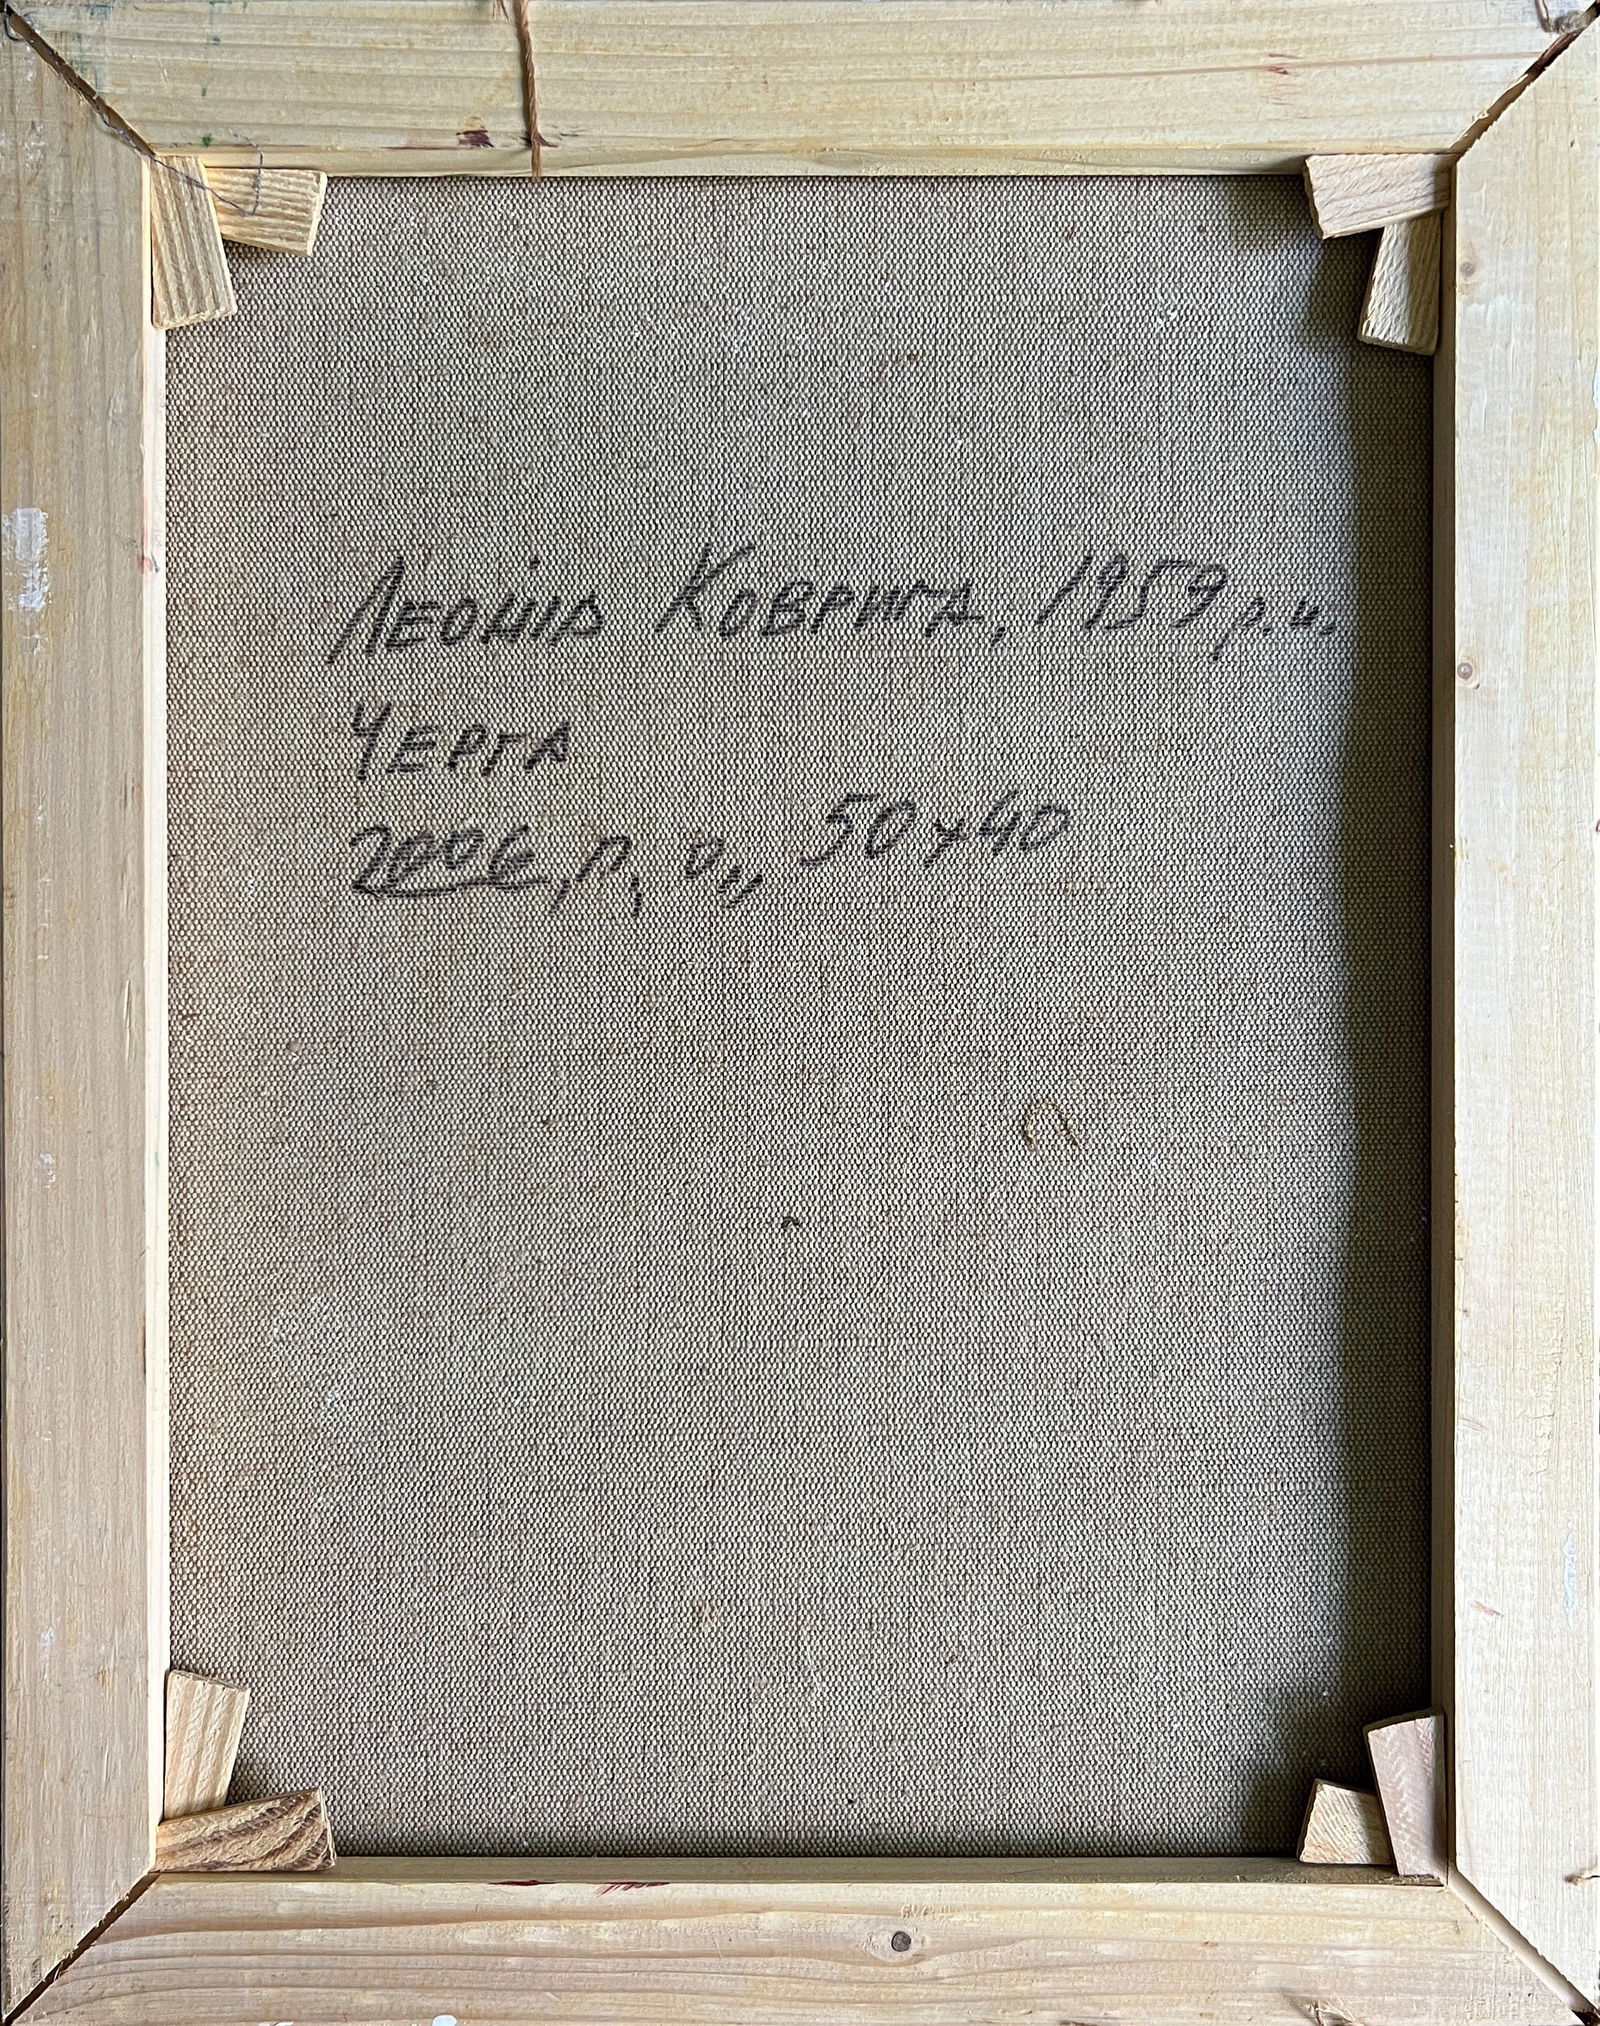 Леонід Коврига, 1959 р.н.
Черга
2006, п, о, 50х40